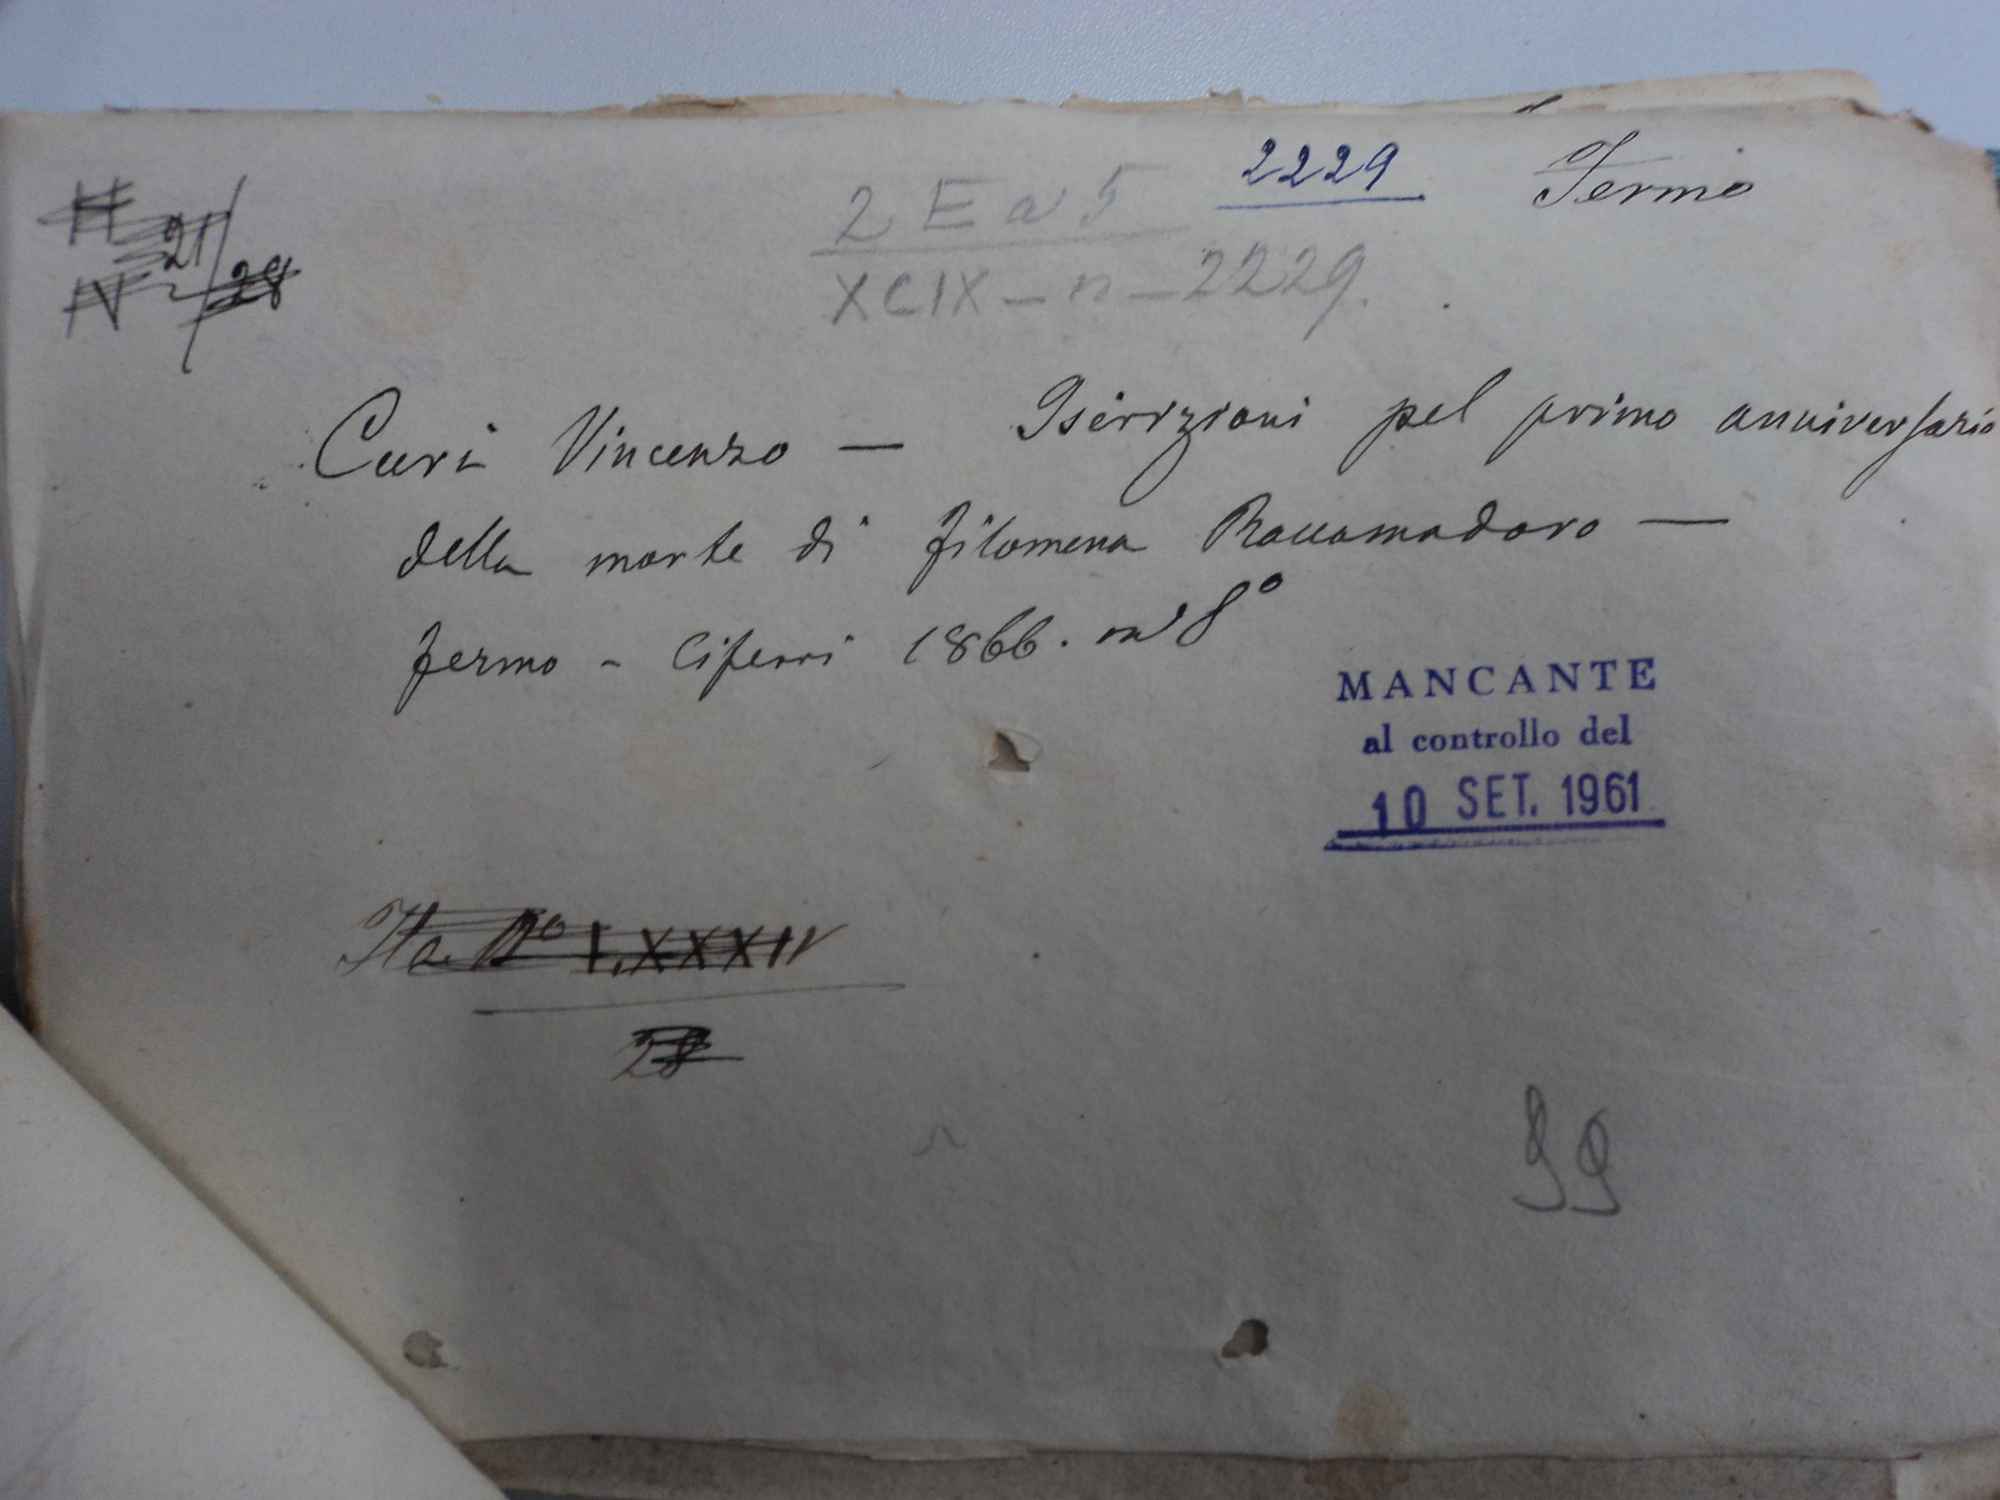 2229 Fermo
2 E a 5
XCIX - n - 2229.
21/28
Curi Vincenzo — Iscrizioni pel primo anniversario
della morte di Filomena Raccamadoro —
Fermo - Ciferri 1866. in 8°
MANCANTE
al controllo del
10 SET. 1961
Ita. N° LXXXIV
28
99